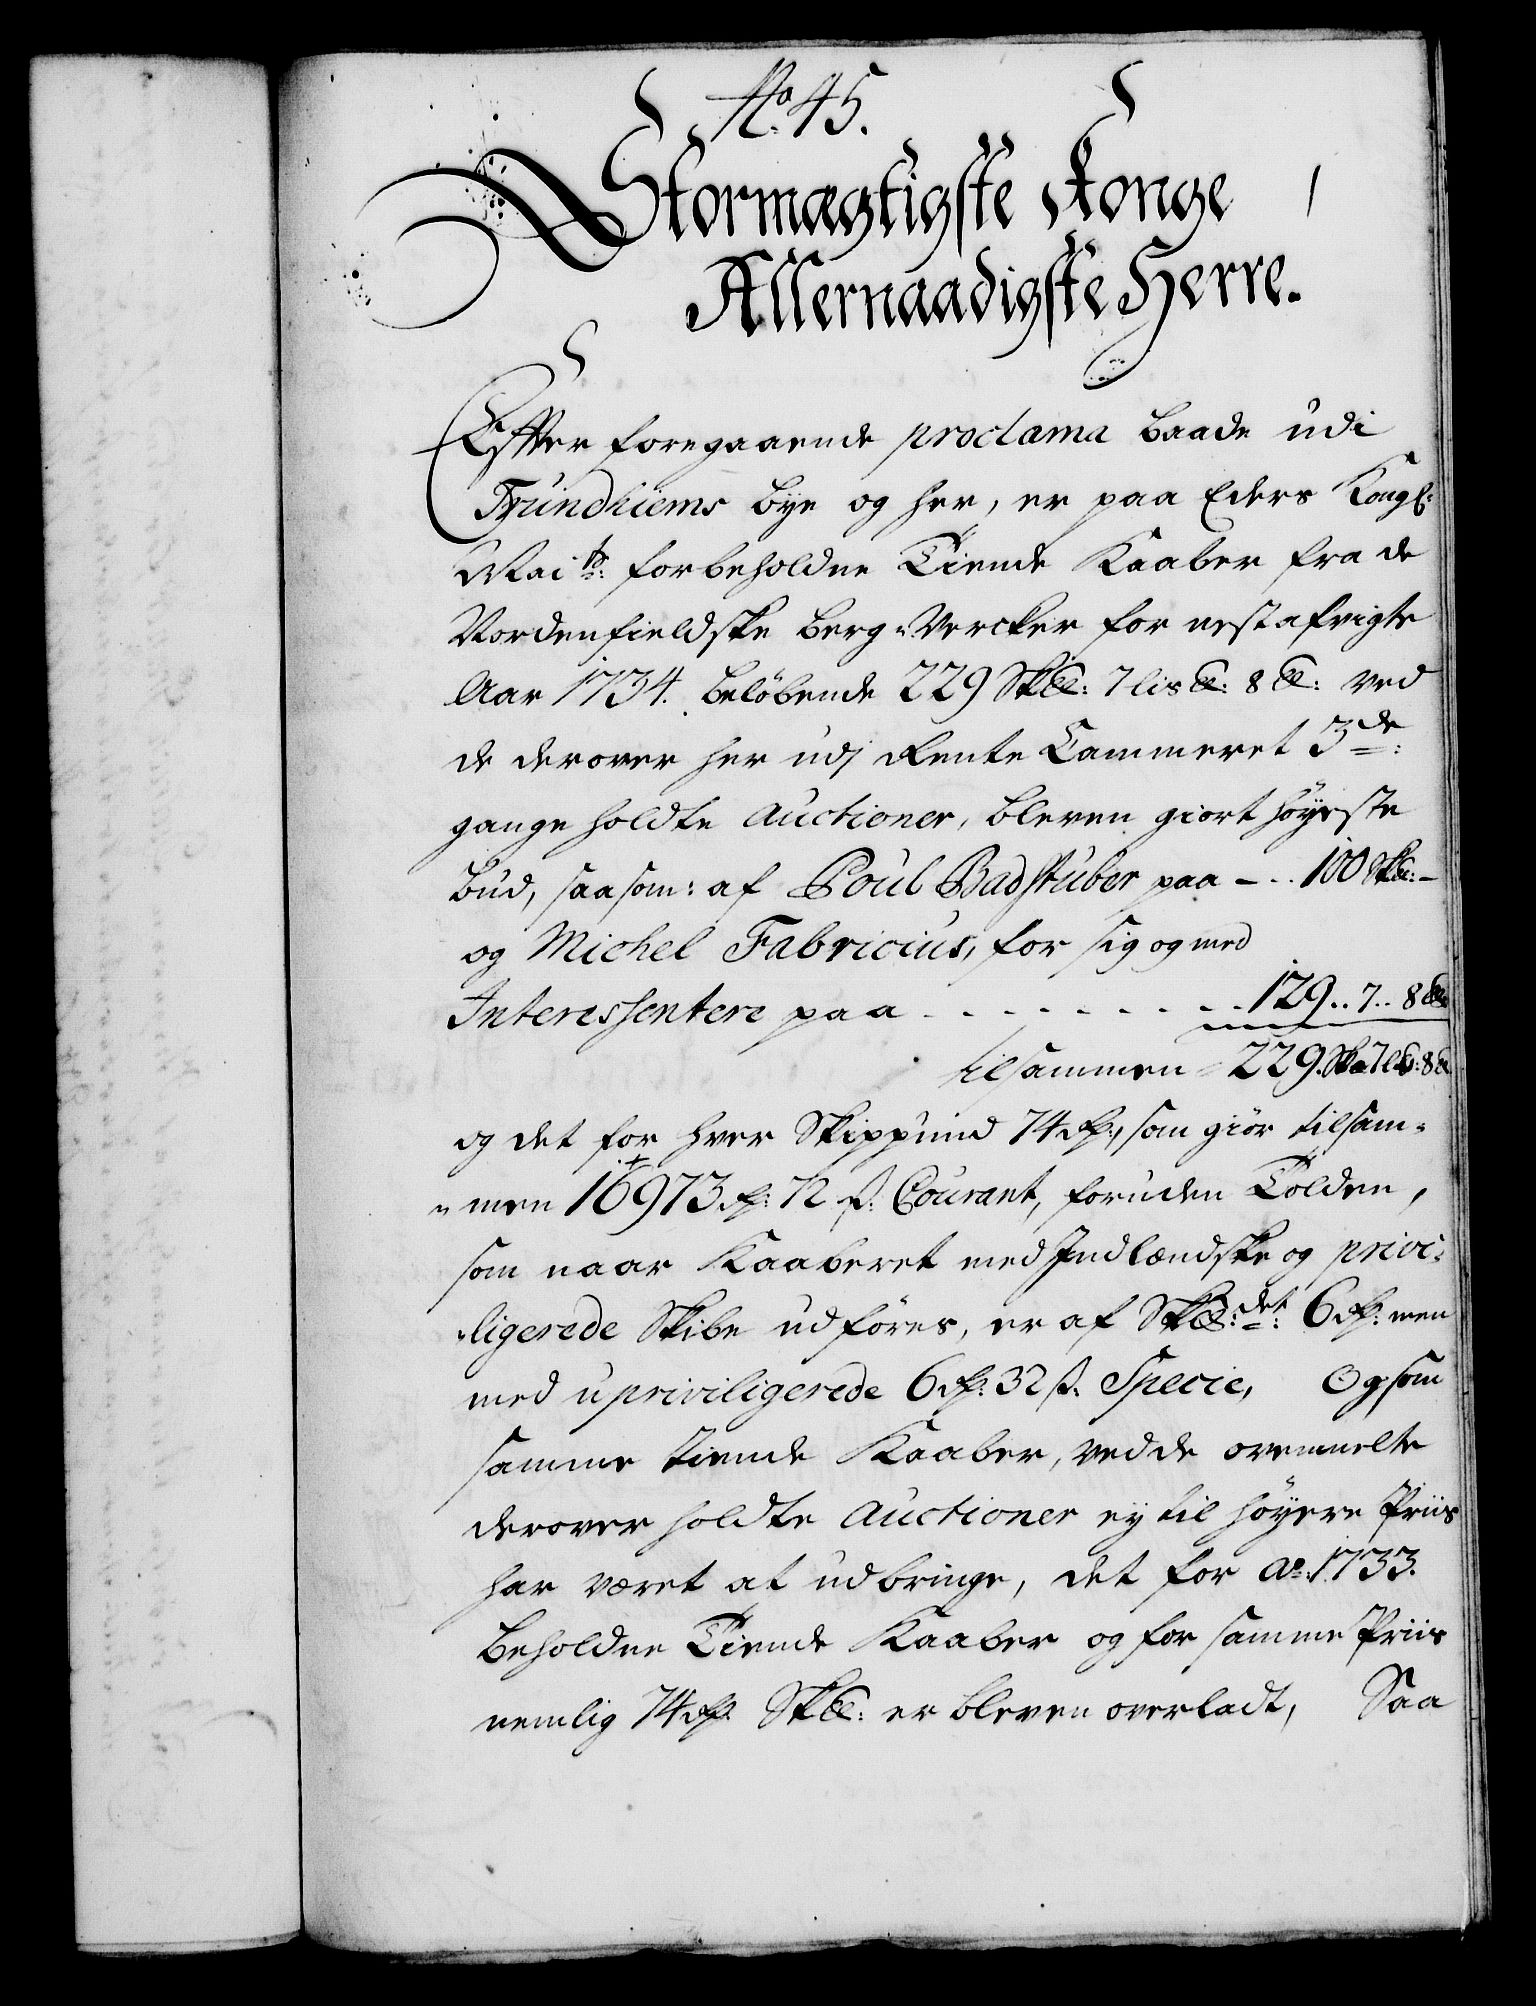 No. 45.
Stormægtigste Konge
Allernaadigste Herre.
Effter foregaaende proclama baade udi
Trundhiems bye og her, er paa Eders Kongl:
Maits: forbeholdne Tiende Kaaber fra de
Nordenfieldske Berg-Vercker for nestafvigte
Aar 1734. beløbende 229 Sk℔: 7 lis℔: 8 ℔: ved
de derover her udj Rente Cammeret 3de:
gange holdte Auctioner, bleven giort høyeste
bud, saasom: af Poul Badstuber paa - .. 100 Sk℔: -
og Michel Fabricius, for sig og med
Interessentere paa - - - - - - - - .. 129.. 7.. 8 ℔
tilsammen 229. Sk℔ 7 l℔: 8 ℔
og det for hver Skippund 74 rdr:, som giør tilsam-
-men 16973 rdr: 72 s: Courant, foruden Tolden,
som naar Kaaberet med Indlændske og privi-
-ligerede Skibe udføres, er af Sk℔:det: 6 rdr: men
med upriviligerede 6 rdr: 32 s. Specie, Og som
samme Tiende Kaaber, ved de ovenmelte
derover holdte Auctioner ey til høyere Priis
har været at udbringe, det for Ao: 1733.
beholdne Tiende Kaaber og for samme Priis
nemlig 74 rdr. Sk℔: er bleven overladt, Saa